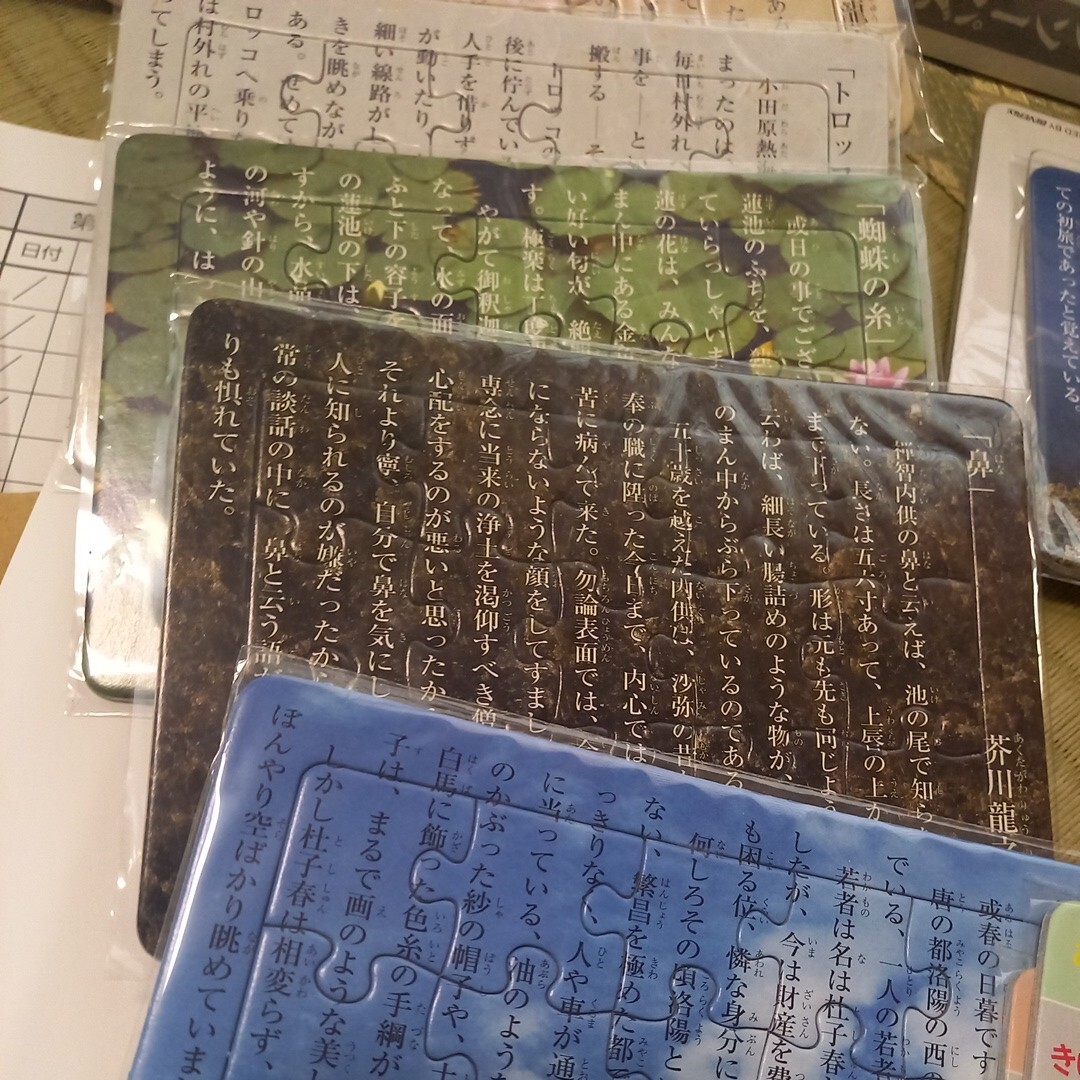 「トロッコ
小田原熱海
まったのは、
毎日村外れへ
事を――とい
搬する――そ
トロッコの
後に佇んでいる
人手を借りず
が動いたり、
細い線路が上
きを眺めながら
ある。せめて
ロッコへ乗り
は村外れの平
ってしまう。
「蜘蛛の糸」
或日の事でござい
蓮池のふちを、
ていらっしゃいま
蓮の花は、みんな
まん中にある金
い好い匂が、絶
す。極楽は丁度
やがて御釈迦
なって、水の面
ふと下の容子を
の蓮池の下は、
すから、水
の河や針の山
ように、は
「鼻」
芥川龍之
禅智内供の鼻と云えば、池の尾で知ら
ない。長さは五六寸あって、上唇の上か
まで下っている。形は元も先も同じよう
云わば、細長い腸詰めのような物が、
のまん中からぶら下っているのである
五十歳を越えた内供は、沙弥の昔
奉の職に陞った今日まで、内心では
苦に病んで来た。勿論表面では、今
にならないような顔をしてすまし
専念に当来の浄土を渇仰すべき僧
心配をするのが悪いと思ったから
それより寧、自分で鼻を気にし
人に知られるのが嫌だったから
常の談話の中に、鼻と云う語
りも惧れていた。
或春の日暮です
唐の都洛陽の西の
でいる、一人の若者
若者は名は杜子春
したが、今は財産を費
も困る位、憐な身分に
何しろその頃洛陽と
ない、繁昌を極めた都
っきりなく、人や車が通
に当っている、油のよう
のかぶった紗の帽子や、土
白馬に飾った色糸の手綱が
子は、まるで画のような美し
しかし杜子春は相変らず、
ぼんやり空ばかり眺めていま
ての初旅であったと覚えている。
日付
第